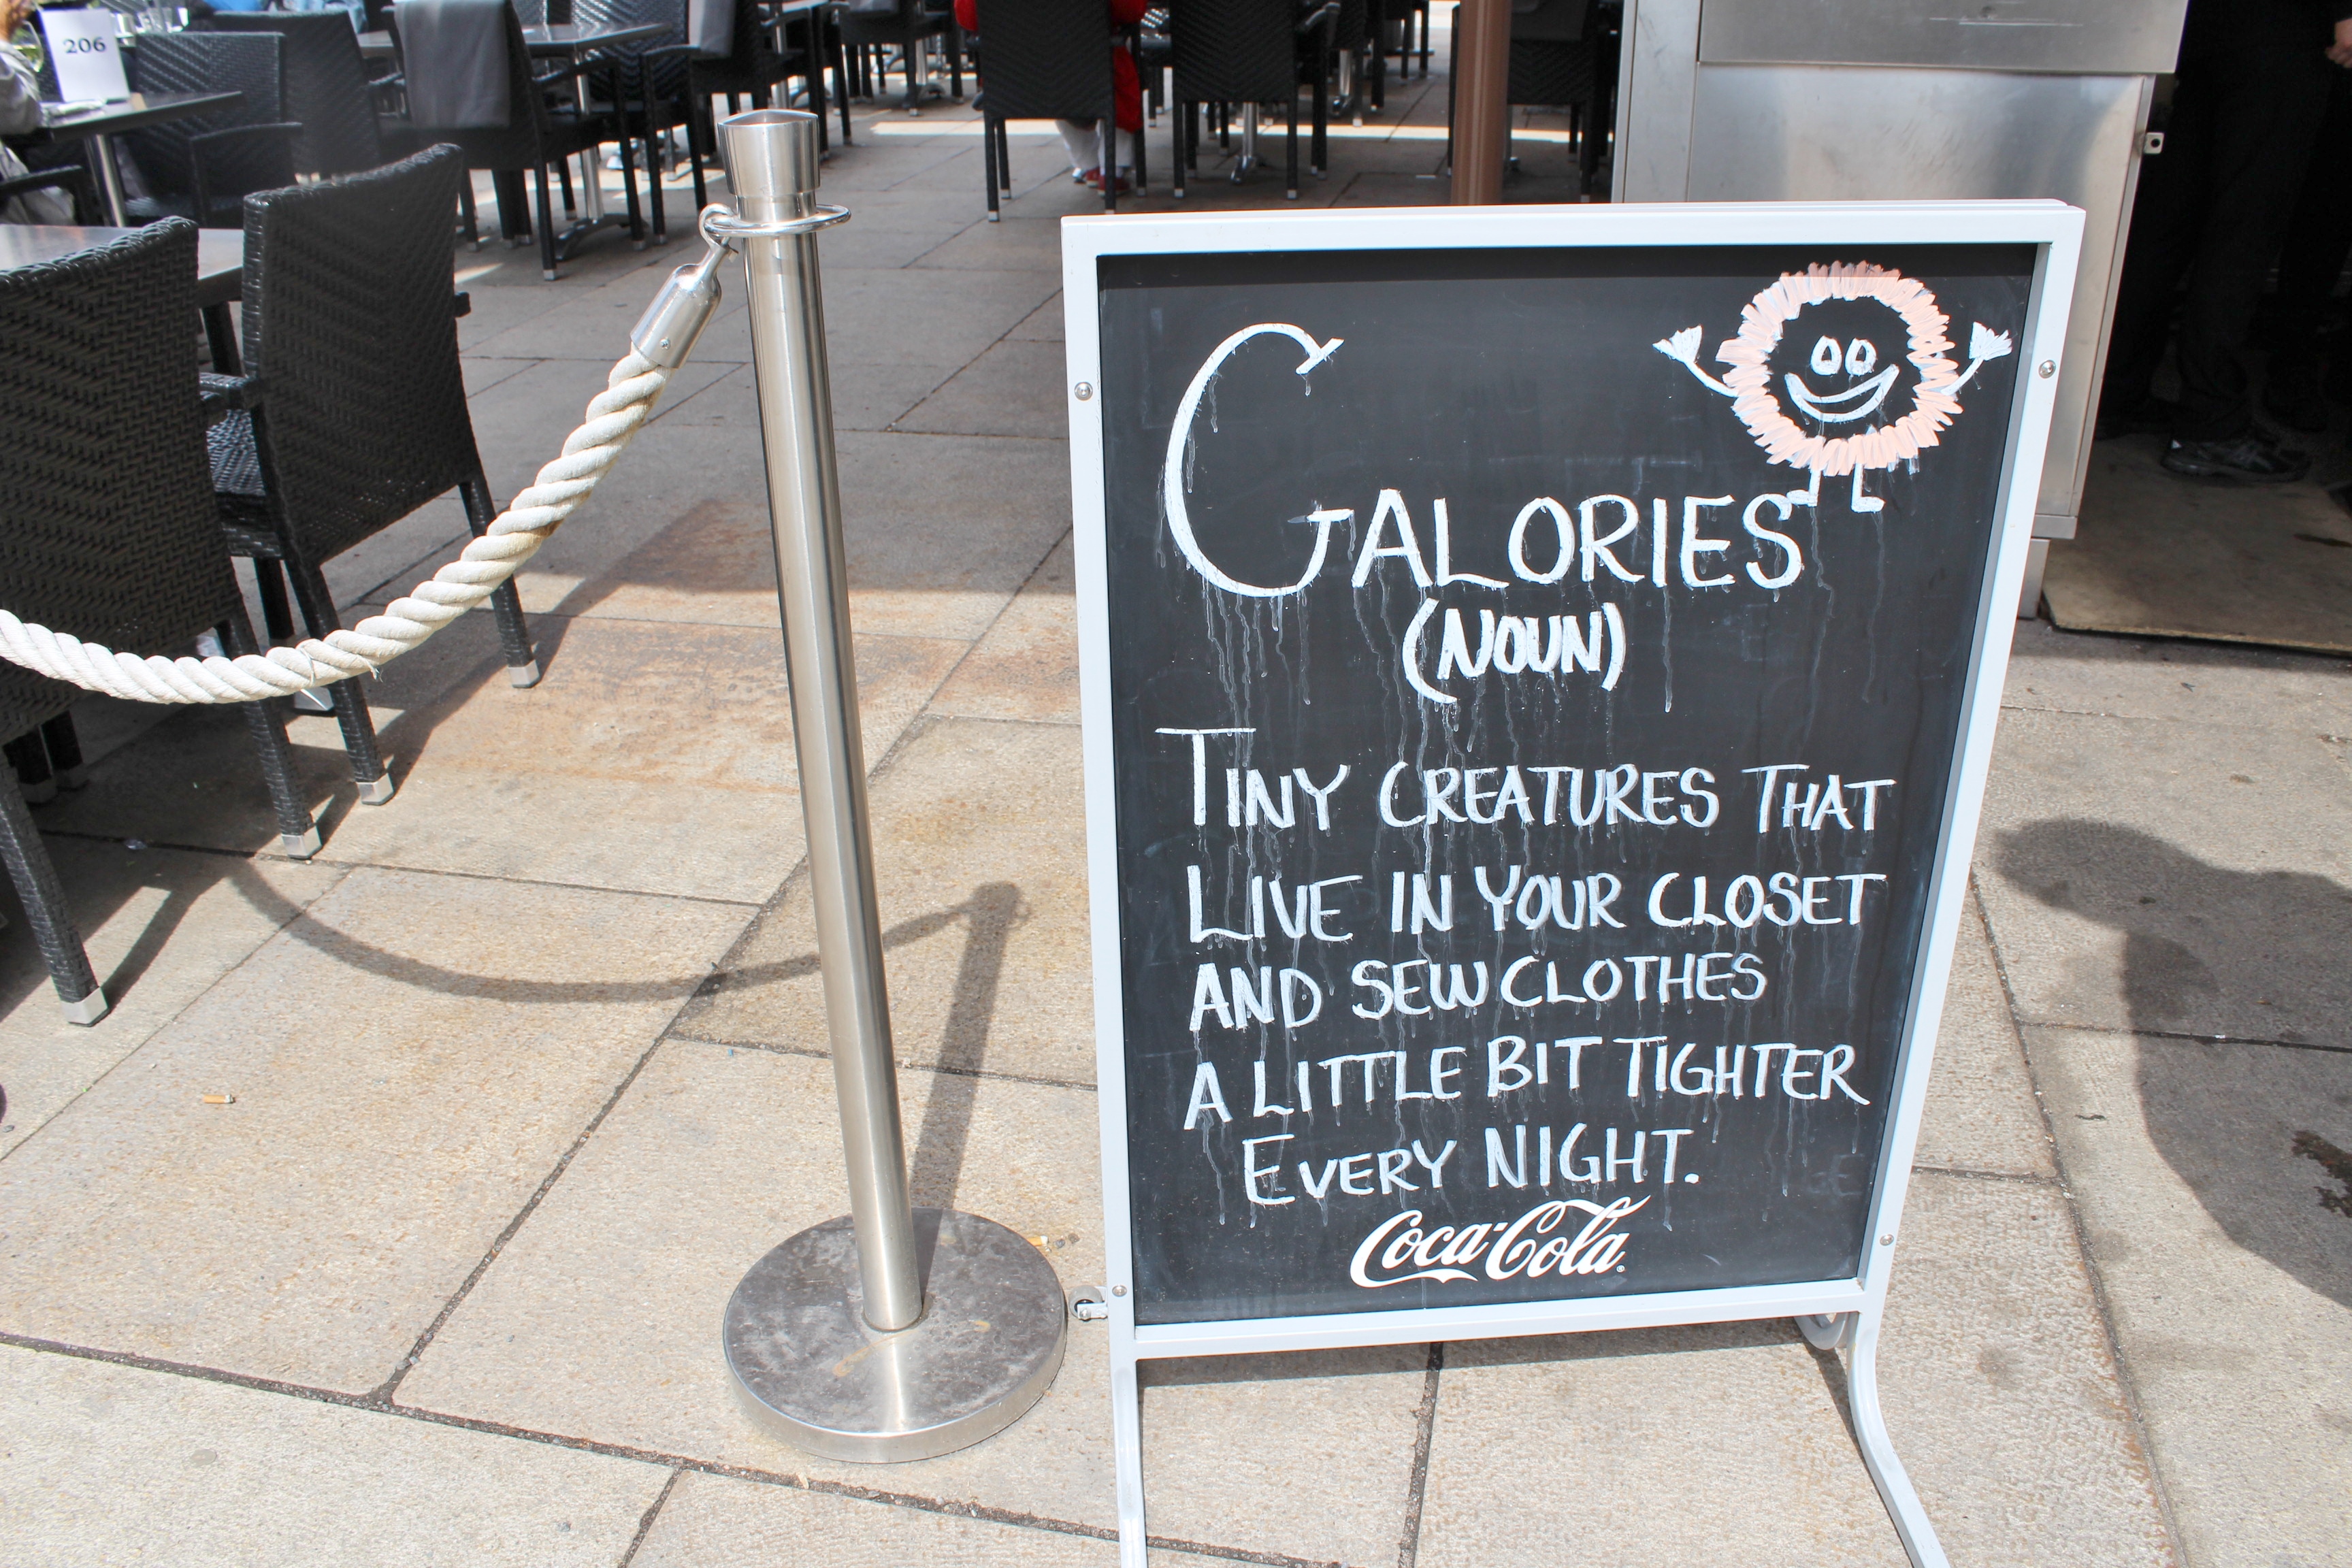 206
CALORIES
(NOUN)
TINY CREATURES THAT
LIVE IN YOUR CLOSET
AND SEW CLOTHES
A LITTLE BIT TIGHTER
EVERY NIGHT.
Coca-Cola